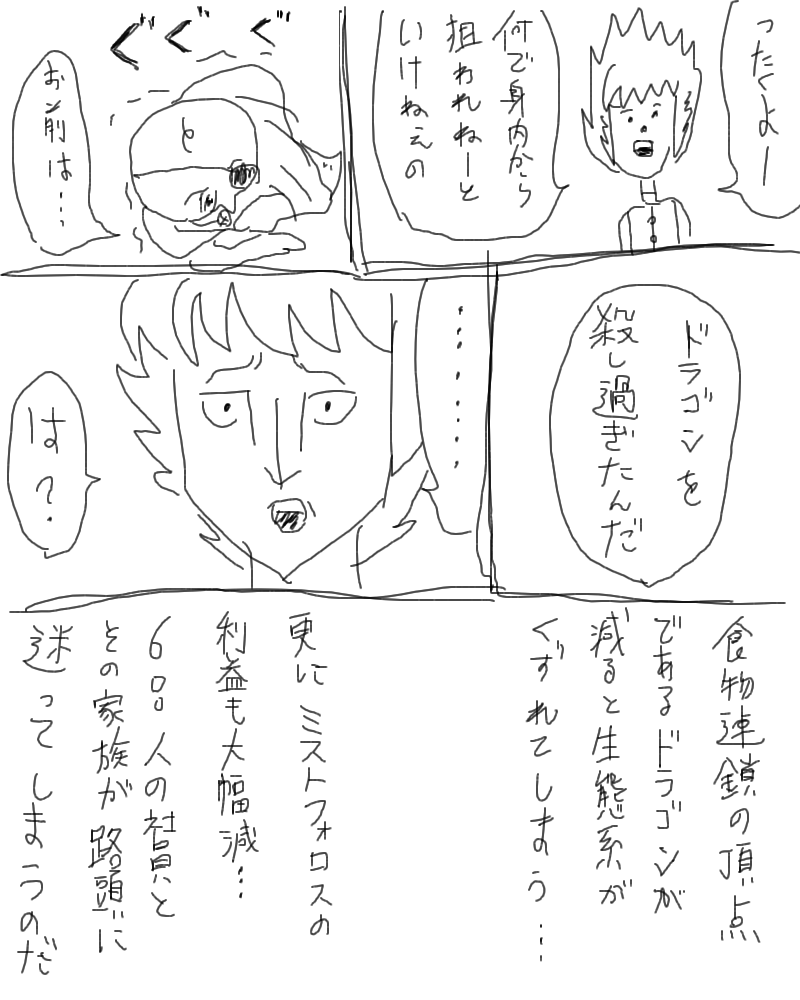 ったくよー
何で身内から
狙われねーと
いけねぇの
ぐぐぐ
と
お前は…
ドラゴンを
殺し過ぎたんだ
………
は?
食物連鎖の頂点
であるドラゴンが
減ると生態系が
くずれてしまう…
更にミストフォロスの
利益も大幅減…
600人の社員と
その家族が路頭に
迷ってしまうのだ